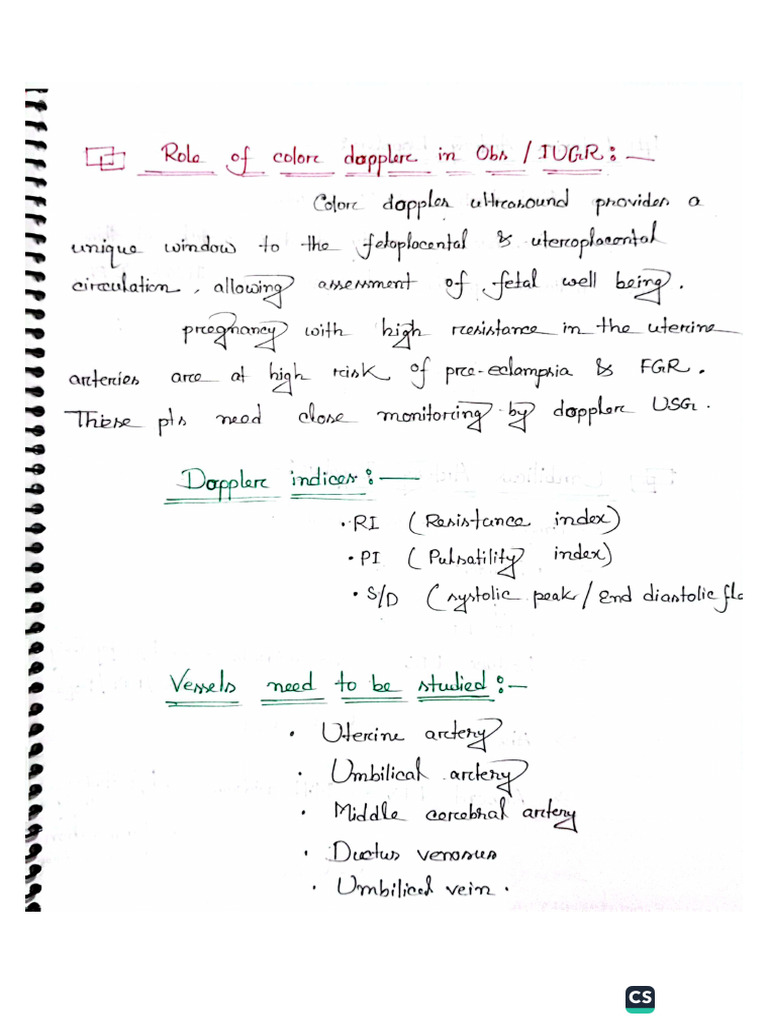 Role of color doppler in Obs / IUGR :—
Color doppler ultrasound provides a
unique window to the fetoplacental & uteroplacental
circulation, allowing assessment of fetal well being.
pregnancy with high resistance in the uterine
arteries are at high risk of pre-eclampsia & FGR.
These pts need close monitoring by doppler USG.
Doppler indices :—
• RI (Resistance index)
• PI (Pulsatility index)
• S/D (systolic peak / End diastolic flo
Vessels need to be studied :—
• Uterine artery
• Umbilical artery
• Middle cerebral artery
• Ductus venosus
• Umbilical vein .
CS